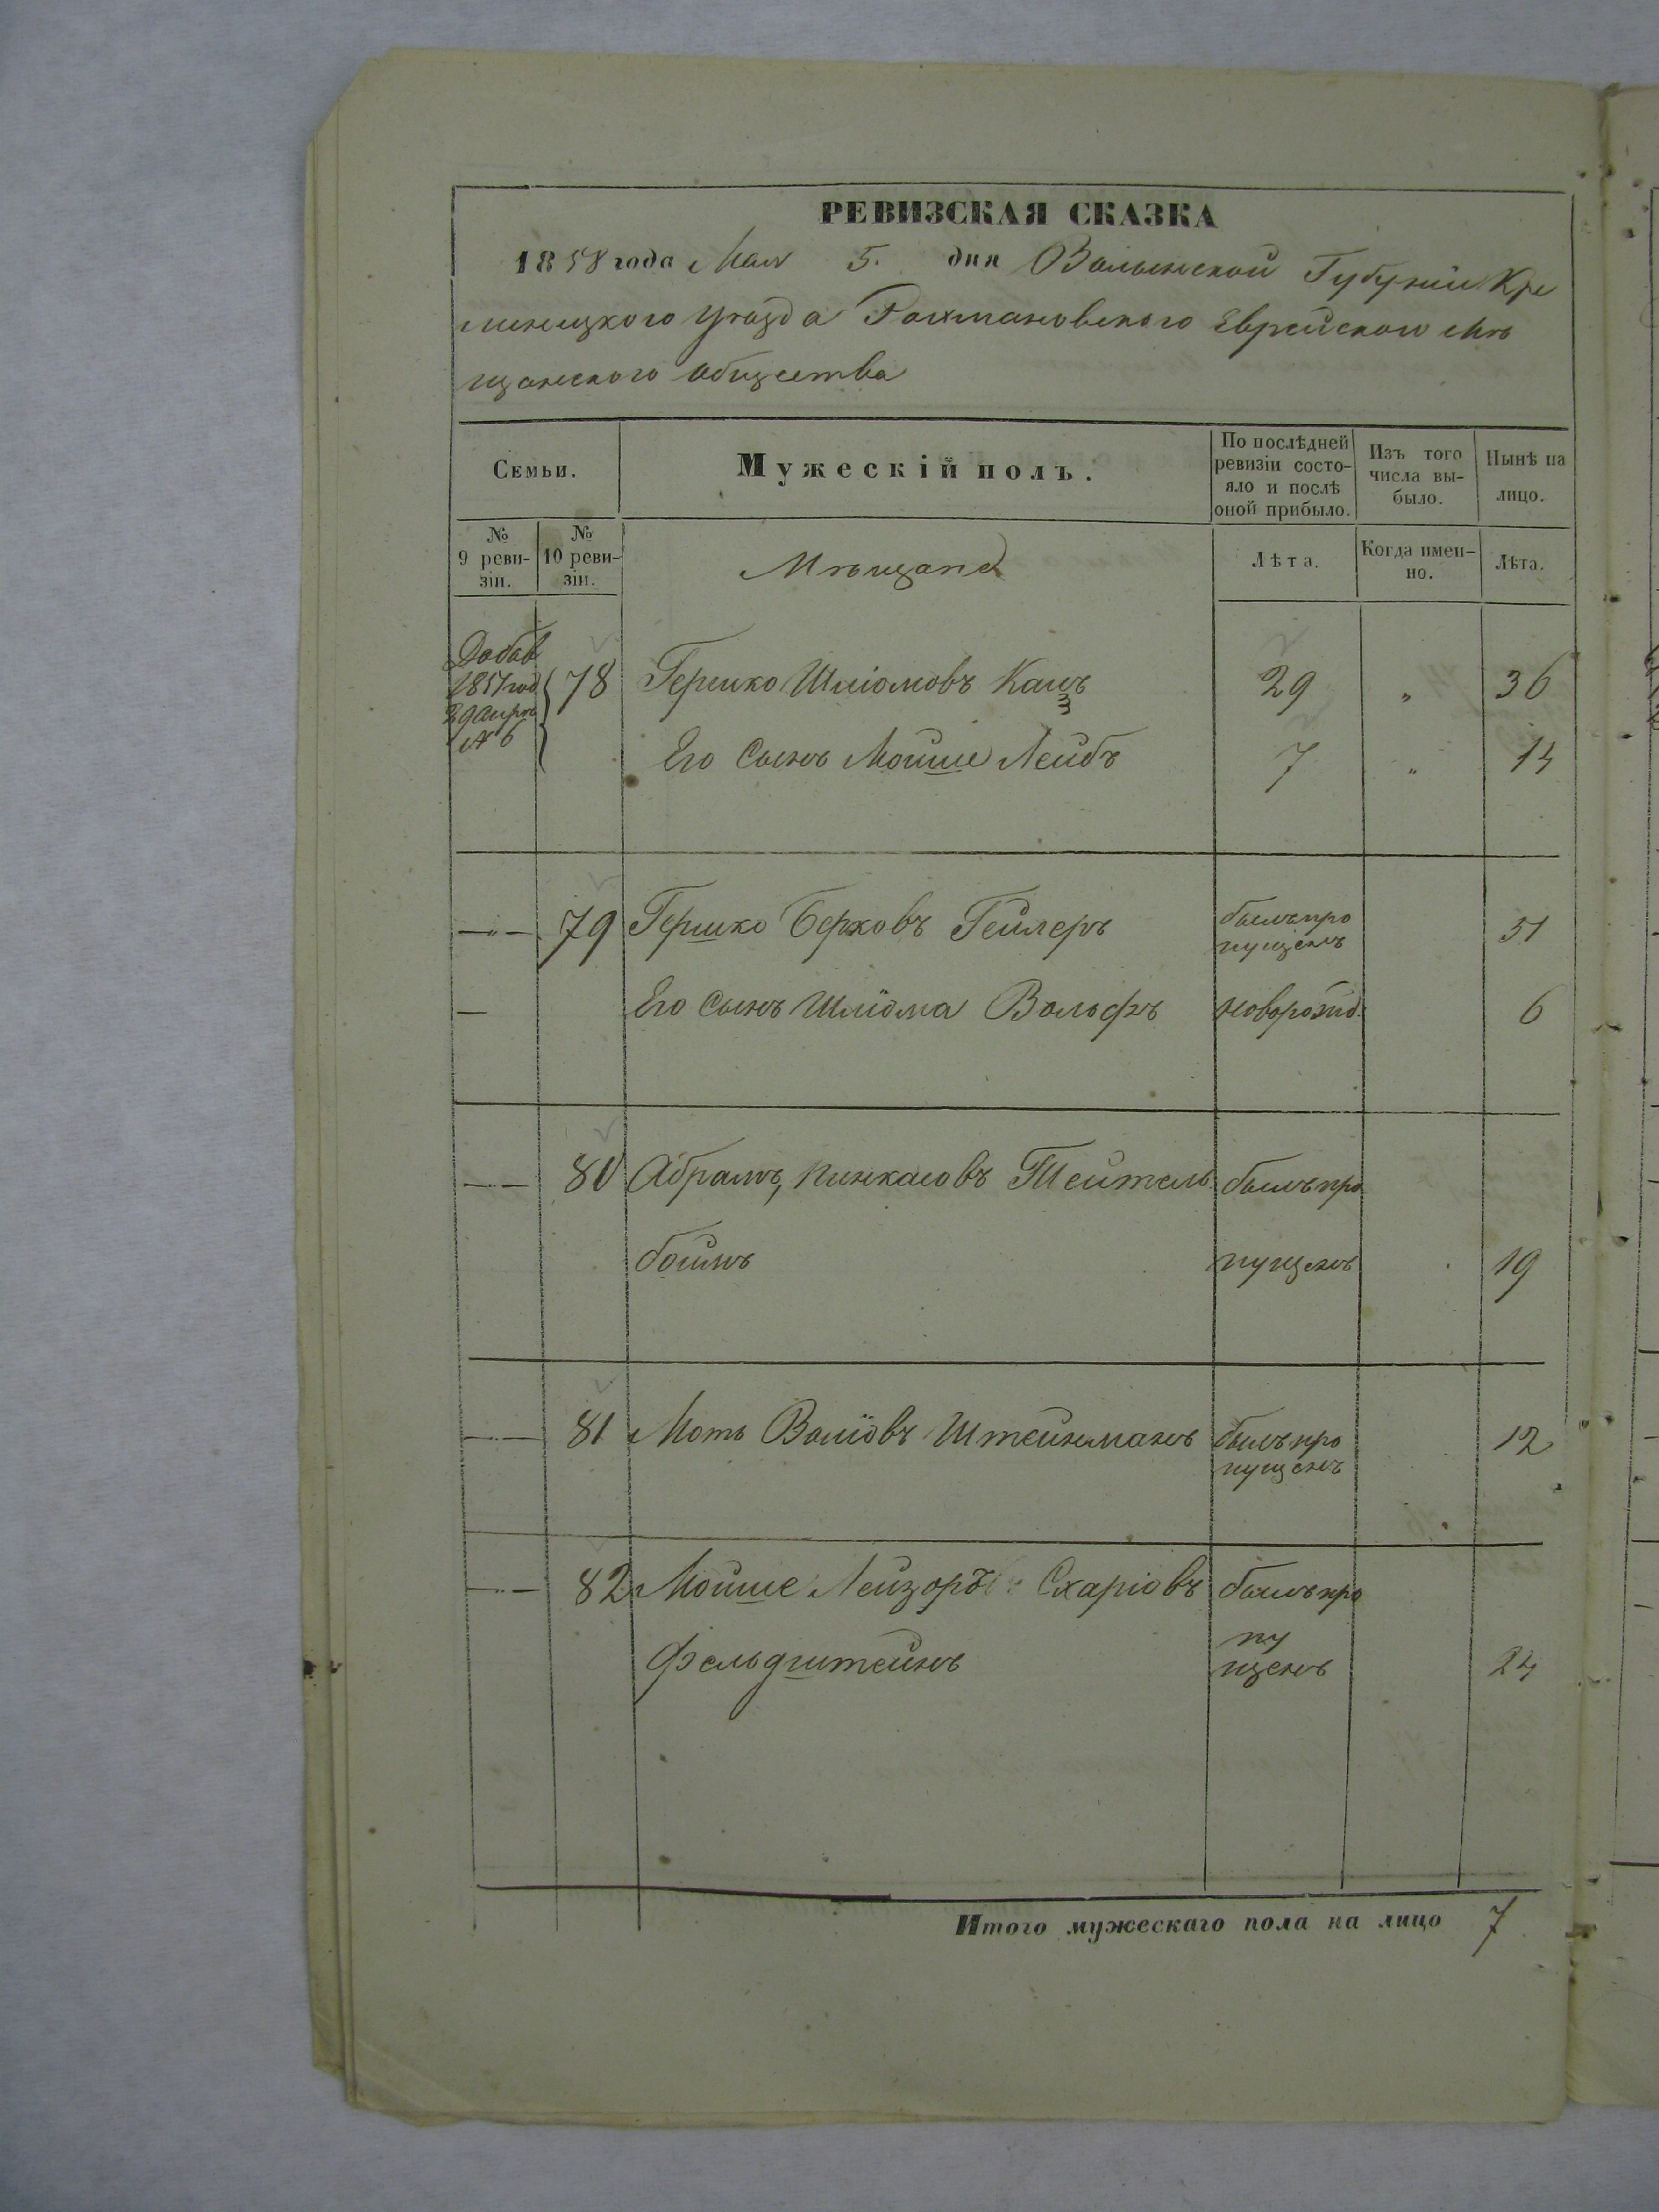 РЕВИЗСКАЯ СКАЗКА
1858 года Мая 5. дня Волынской Губернiи Кре
менецкого Уѣзда Рахмановского Еврейского Мѣ
щанского общества
Семьи.
Мужескій полъ.
По послѣдней ревизіи состо-
яло и послѣ оной прибыло.
Изъ того числа вы-
было.
Нынѣ на лицо.
№ 9 реви-
зіи.
№ 10 реви-
зіи.
Мѣщане
Лѣта.
Когда имен-
но.
Лѣта.
Добав
1851 год
29 Апрѣ
№ 6
78 Гершко Шліомовъ Кацъ 29 „ 36
Его Сынъ Мойше Лейбъ 7 „ 14
79 Гершко Берковъ Гейлеръ былъ про
пущенъ 51
Его Сынъ Шліома Вольфъ новорожд. 6
80 Абрамъ, Пинкасовъ Тейтель былъ про
боймъ пущенъ 19
81 Моть Волiовъ Штейнманъ былъ про
пущенъ 12
82 Мойше Лейзоръ Схаріовъ былъ про
пу
Фельдштейнъ щенъ 24
Итого мужескаго пола на лицо 7